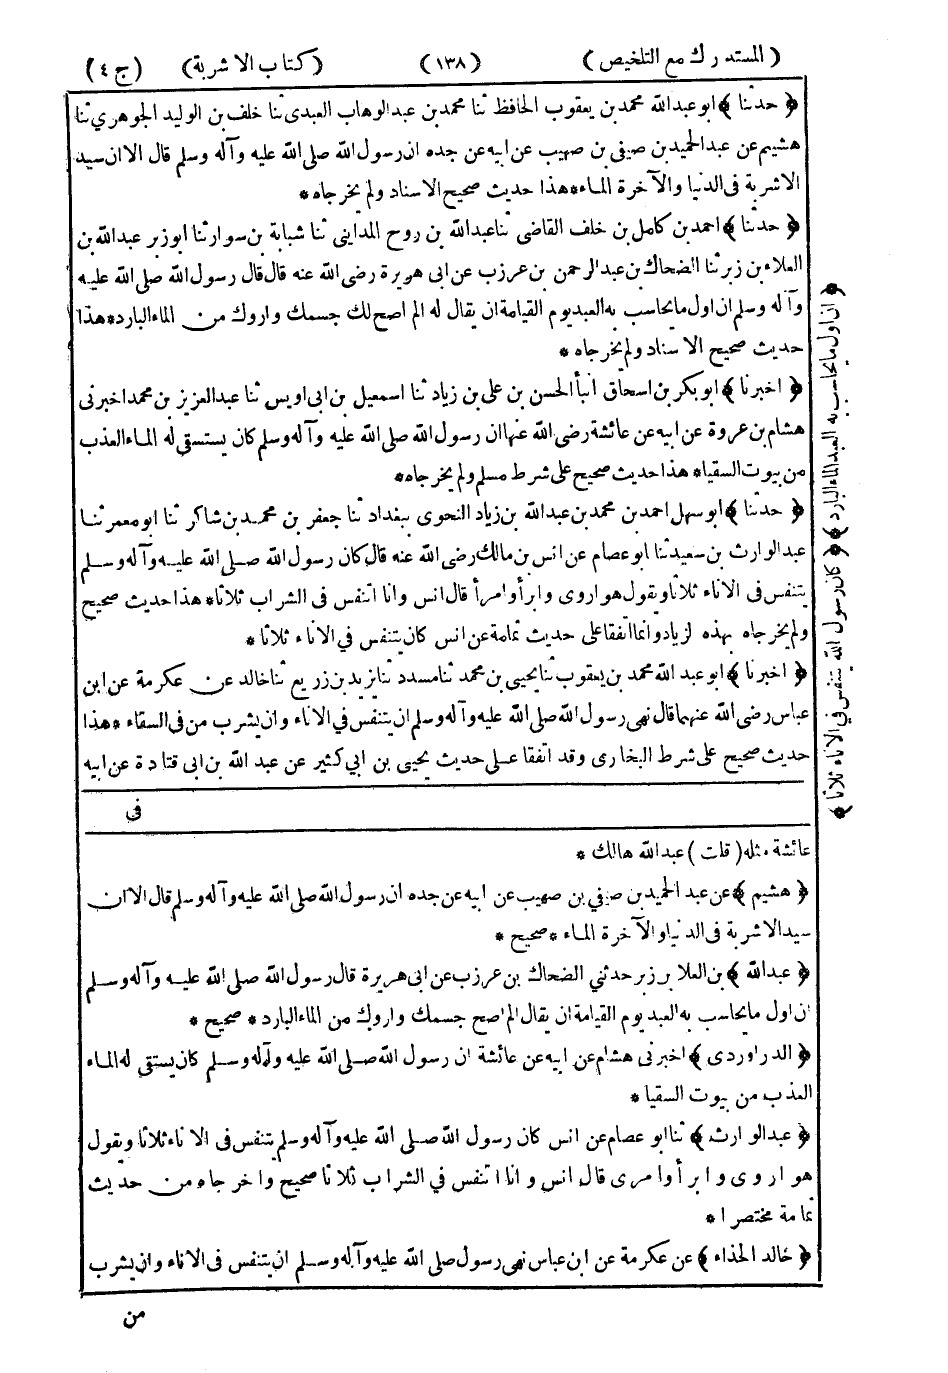 (المستدرك مع التلخيص) (١٣٨) (كتاب الاشربة) (ج٤)
﴿ حدثنا ﴾ ابو عبدالله محمد بن يعقوب الحافظ ثنا محمد بن عبدالوهاب العبدى ثنا خلف بن الوليد الجوهري ثنا
هشيم عن عبدالحميد بن صيفي بن صهيب عن ابيه عن جده ان رسول الله صلى الله عليه وآله وسلم قال الا ان سيد
الاشربة فى الدنيا والآخرة الماء * هذا حديث صحيح الاسناد ولم يخرجاه *
﴿ حدثنا ﴾ احمد بن كامل بن خلف القاضى ثنا عبدالله بن روح المدايني ثنا شبابة بن سوار ثنا ابو زبر عبدالله بن
العلاء بن زبر ثنا الضحاك بن عبدالرحمن بن عرزب عن ابى هريرة رضى الله عنه قال قال رسول الله صلى الله عليه
وآله وسلم ان اول ما يحاسب به العبد يوم القيامة ان يقال له الم اصح لك جسمك واروك من الماء البارد * هذا
حديث صحيح الاسناد ولم يخرجاه *
﴿ اخبرنا ﴾ ابو بكر بن اسحاق انبأ الحسن بن على بن زياد ثنا اسمعيل بن ابى اويس ثنا عبدالعزيز بن محمد اخبرنى
هشام بن عروة عن ابيه عن عائشة رضى الله عنها ان رسول الله صلى الله عليه وآله وسلم كان يستسقى له الماء العذب
من بيوت السقيا * هذا حديث صحيح على شرط مسلم ولم يخرجاه *
﴿ حدثنا ﴾ ابو سهل احمد بن محمد بن عبدالله بن زياد النحوى ببغداد ثنا جعفر بن محمد بن شاكر ثنا ابو معمر ثنا
عبدالوارث بن سعيد ثنا ابو عصام عن انس بن مالك رضى الله عنه قال كان رسول الله صلى الله عليه وآله وسلم
يتنفس فى الاناء ثلاثا ويقول هو اروى وابرأ وامرأ قال انس وانا اتنفس فى الشراب ثلاثا * هذا حديث صحيح
ولم يخرجاه بهذه لزيادوانما اتفقا على حديث ثمامة عن انس كان يتنفس في الاناء ثلاثا *
﴿ اخبرنا ﴾ ابو عبد الله محمد بن يعقوب ثنا يحيى بن محمد ثنا مسدد ثنا يزيد بن زريع ثنا خالد عن عكرمة عن ابن
عباس رضى الله عنهما قال نهى رسول الله صلى الله عليه وآله وسلم ان يتنفس في الاناء وان يشرب من فى السقاء * هذا
حديث صحيح على شرط البخارى وقد اتفقا على حديث يحيى بن ابي كثير عن عبد الله بن ابى قتادة عن ابيه
فى
عائشة مثله (قلت) عبدالله هالك *
﴿ هشيم ﴾ عن عبد الحميد بن صيفي بن صهيب عن ابيه عن جده ان رسول الله صلى الله عليه وآله وسلم قال الا ان
سيد الاشربة فى الدنيا والآخرة الماء * صحيح *
﴿ عبدالله ﴾ بن العلا بن زبر حدثني الضحاك بن عرزب عن ابى هريرة قال رسول الله صلى الله عليه وآله وسلم
ان اول ما يحاسب به العبد يوم القيامة ان يقال الم اصح جسمك واروك من الماء البارد * صحيح *
﴿ الدراوردى ﴾ اخبرنى هشام عن ابيه عن عائشة ان رسول الله صلى الله عليه وآله وسلم كان يستقى له الماء
العذب من بيوت السقيا *
﴿ عبدالوارث ﴾ ثنا ابو عصام عن انس كان رسول الله صلى الله عليه وآله وسلم يتنفس فى الاناء ثلاثا ويقول
هو اروى وابرأ وامرى قال انس وانا اتنفس في الشراب ثلاثا صحيح واخرجاه من حديث
ثمامة مختصرا *
﴿ خالد الحذاء ﴾ عن عكرمة عن ابن عباس نهى رسول صلى الله عليه وآله وسلم ان يتنفس فى الاناء وان يشرب
من
﴿ ان اول ما يحاسب به العبد الماء البارد ﴾ ﴿ كان رسول الله يتنفس في الاناء ثلاثا ﴾